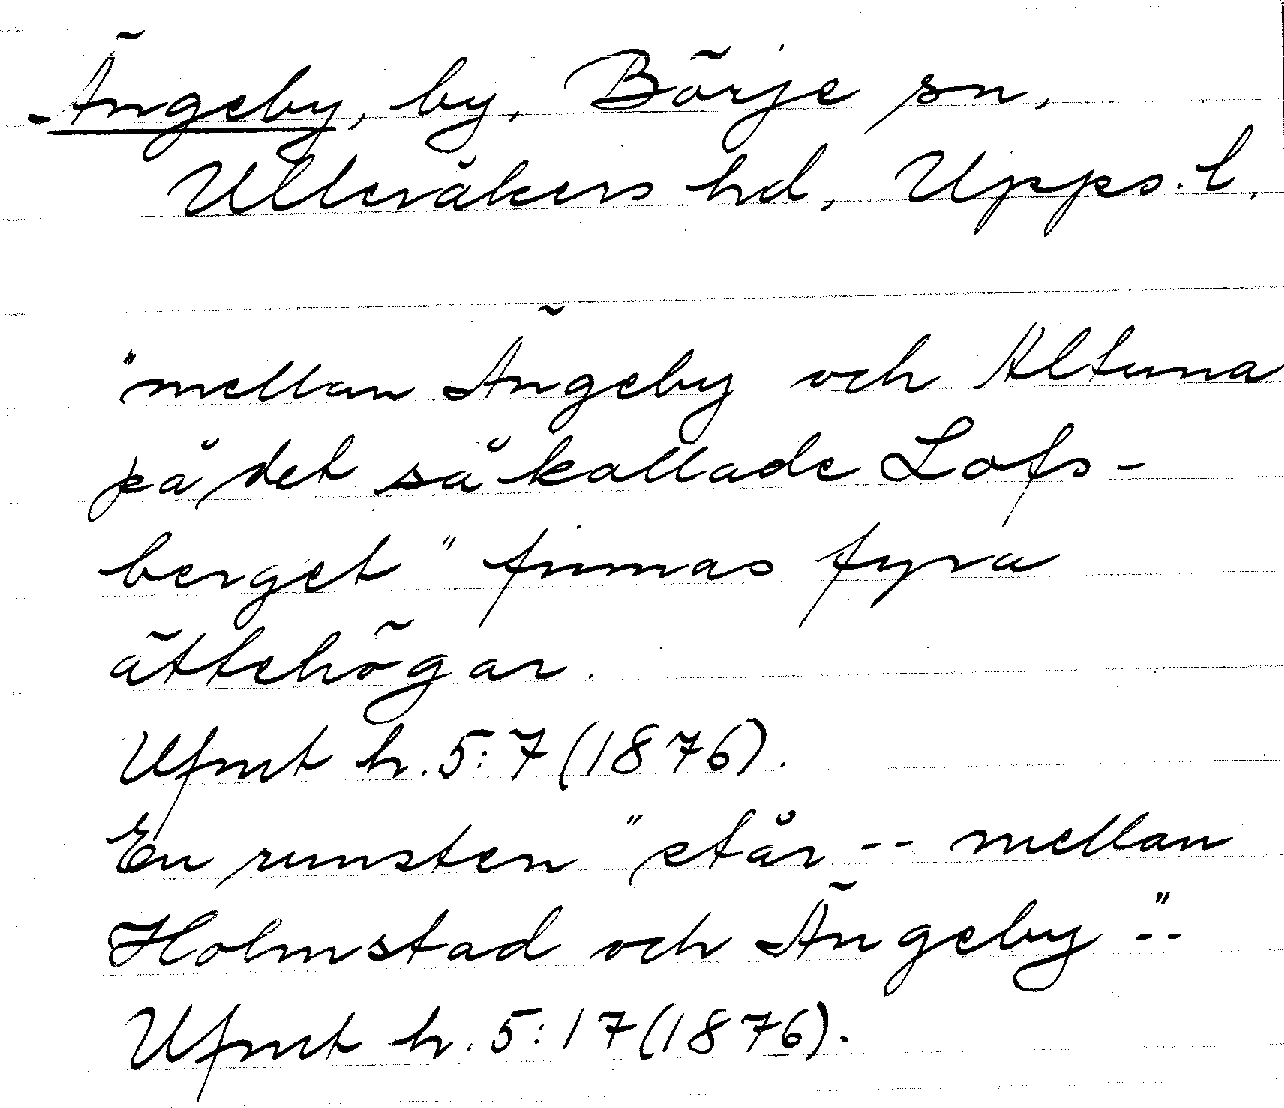 Ängeby, by, Börje sn,
Ulleråkers hd, Upps. l.
"mellan Ängeby och Altuna
på det så kallade Lofs-
berget" finnas fyra
ättehögar.
Ufmt h. 5:7 (1876).
En runsten "står -- mellan
Holmstad och Ängeby --"
Ufmt h. 5:17 (1876).